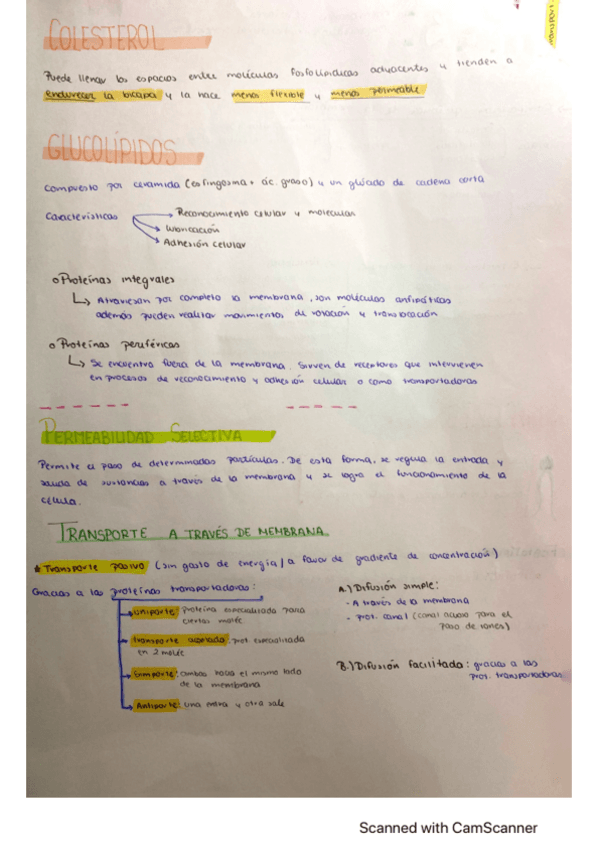 COLESTEROL
Puede llenar los espacios entre moléculas fosfolipídicas adyacentes y tienden a
endurecer la bicapa y la hace menos flexible y menos permeable
GLUCOLÍPIDOS
Compuesto por ceramida (esfingosina + ác. graso) y un glúcido de cadena corta
Características
Reconocimiento celular y molecular
Lubricación
Adhesión celular
o Proteínas integrales
Atraviesan por completo la membrana, son moléculas anfipáticas
además pueden realizar movimientos de rotación y translocación
o Proteínas periféricas
Se encuentra fuera de la membrana. Sirven de receptores que intervienen
en procesos de reconocimiento y adhesión celular o como transportadoras
PERMEABILIDAD SELECTIVA
Permite el paso de determinadas partículas. De esta forma, se regula la entrada y
salida de sustancias a través de la membrana y se logra el funcionamiento de la
célula.
TRANSPORTE A TRAVÉS DE MEMBRANA
* Transporte pasivo (sin gasto de energía/a favor de gradiente de concentración)
Gracias a las proteínas transportadoras:
Uniporte: proteína especializada para
ciertas moléc
Transporte acoplado: prot. especializada
en 2 moléc
Simporte: ambas hacia el mismo lado
de la membrana
Antiporte: una entra y otra sale
A.) Difusión simple:
- A través de la membrana
- prot. canal (canal acuoso para el
paso de iones)
B.) Difusión facilitada: gracias a las
prot. transportadoras
Scanned with CamScanner